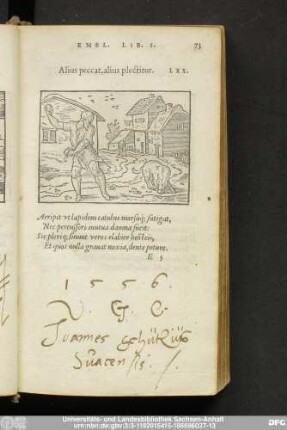 EMBL. LIB. I. 73
Alius peccat, alius plectitur. LXX.
Arripit vt lapidem catulus morsuq; fatigat,
Nec percussori mutua damna facit:
Sic pleriq; sinunt veros elabier hosteis,
Et quos nulla grauat noxia, dente petunt.
E 5
1556.
V. G. C.
Joannes
Universitäts- und Landesbibliothek Sachsen-Anhalt
urn:nbn:de:gbv:3:3-1192015415-186686027-13
DFG